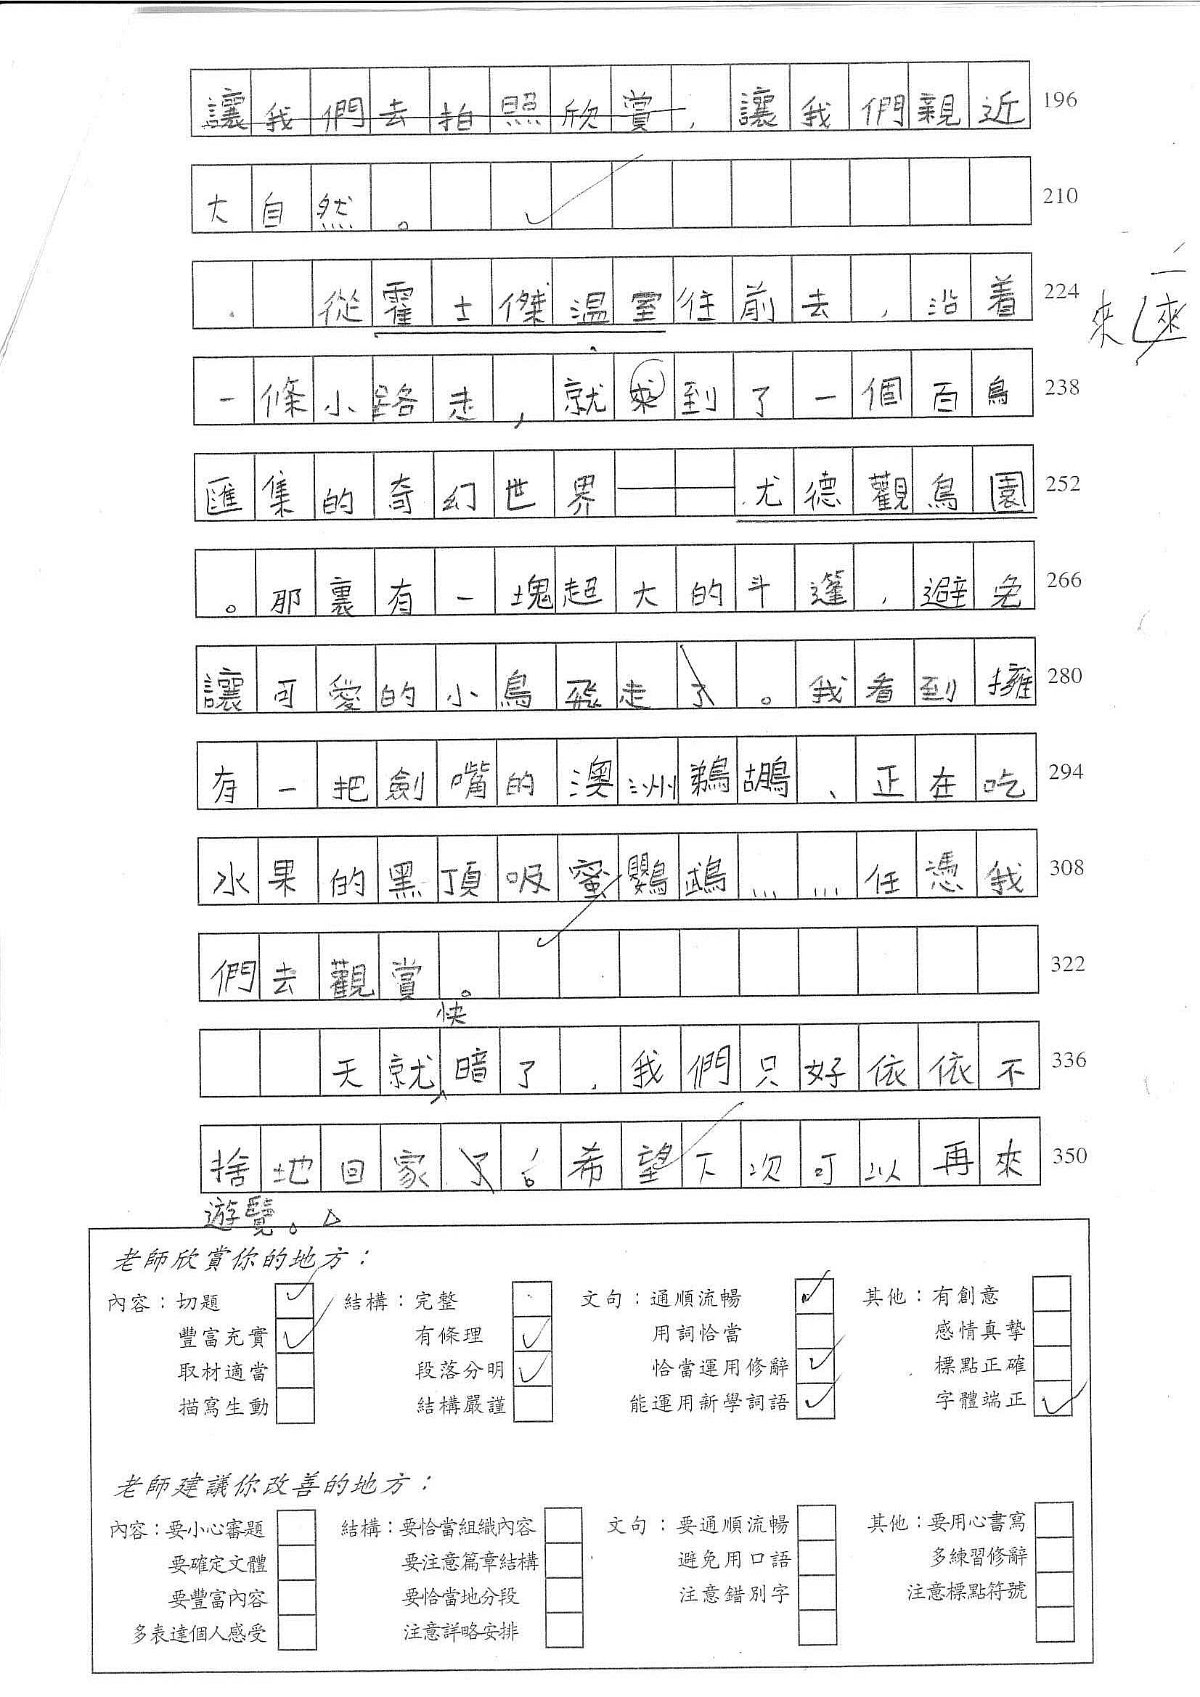 讓我們去拍照欣賞，讓我們親近 196
大自然。 210
從霍士傑溫室往前去，沿着 224
來
一條小路走，就來到了一個百鳥 238
匯集的奇幻世界——尤德觀鳥園 252
。那裏有一塊超大的斗篷，避免 266
讓可愛的小鳥飛走了。我看到擁 280
有一把劍嘴的澳洲鵜鶘、正在吃 294
水果的黑頂吸蜜鸚鵡……任憑我 308
們去觀賞。 322
快
天就暗了，我們只好依依不 336
捨地回家了，希望下次可以再來 350
遊覽。
老師欣賞你的地方：
內容：切題 結構：完整 文句：通順流暢 其他：有創意
豐富充實 有條理 用詞恰當 感情真摯
取材適當 段落分明 恰當運用修辭 標點正確
描寫生動 結構嚴謹 能運用新學詞語 字體端正
老師建議你改善的地方：
內容：要小心審題 結構：要恰當組織內容 文句：要通順流暢 其他：要用心書寫
要確定文體 要注意篇章結構 避免用口語 多練習修辭
要豐富內容 要恰當地分段 注意錯別字 注意標點符號
多表達個人感受 注意詳略安排